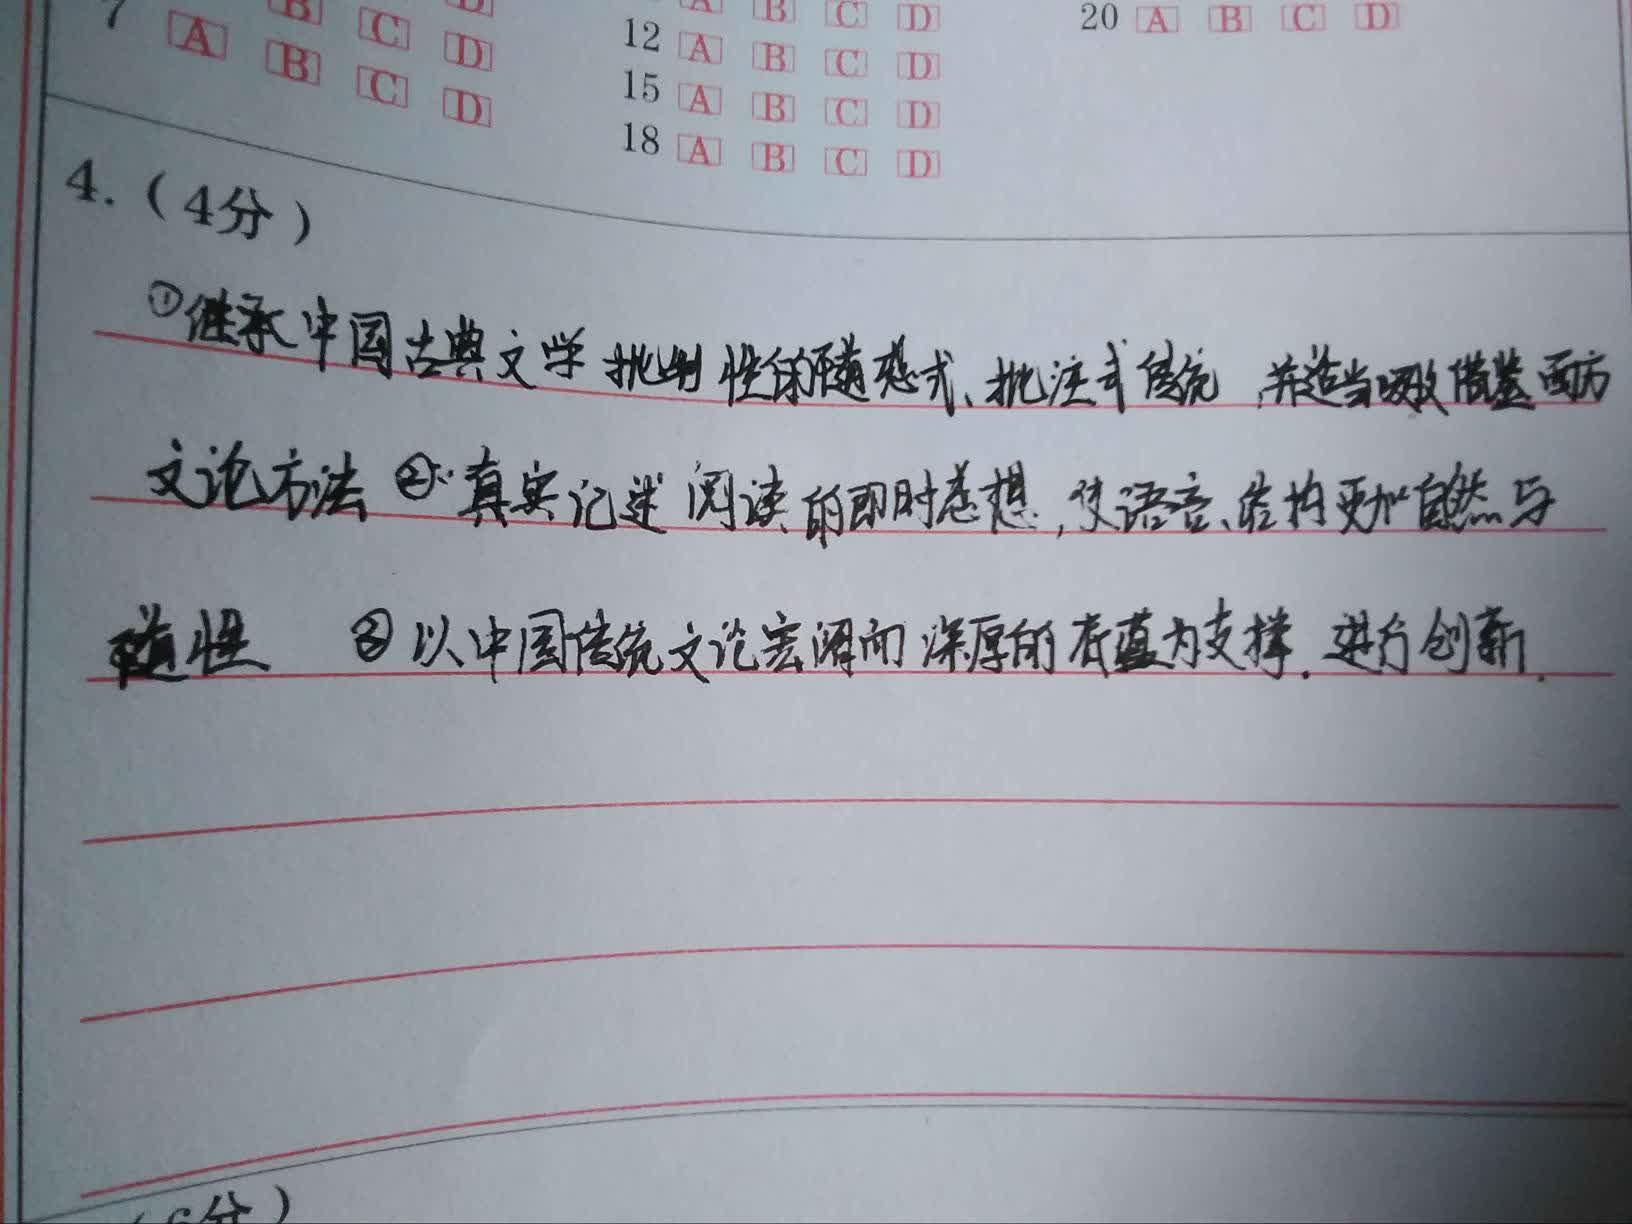 7 A B C D
A B C D
12 A B C D
15 A B C D
18 A B C D
20 A B C D
4.（4分）
①继承中国古典文学批判性的随想式、批注式传统,并适当吸收借鉴西方
文论方法 ②.真实记述阅读的即时感想,使语言、结构更加自然与
随性 ③以中国传统文论宏阔而深厚的底蕴为支撑.进行创新.
（6分）